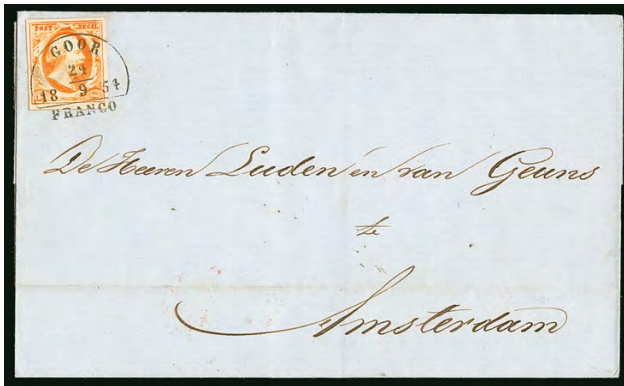 POST ZEGEL
GOOR
24
18 9 54
FRANCO
De Heeren Luden en van Geuns
te
Amsterdam